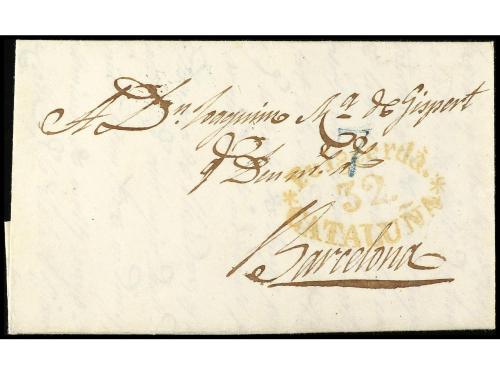 A Dn. Joaquim Ma. de Gispert
7
Puigcerdà.
32.
CATALUÑA
Barcelona